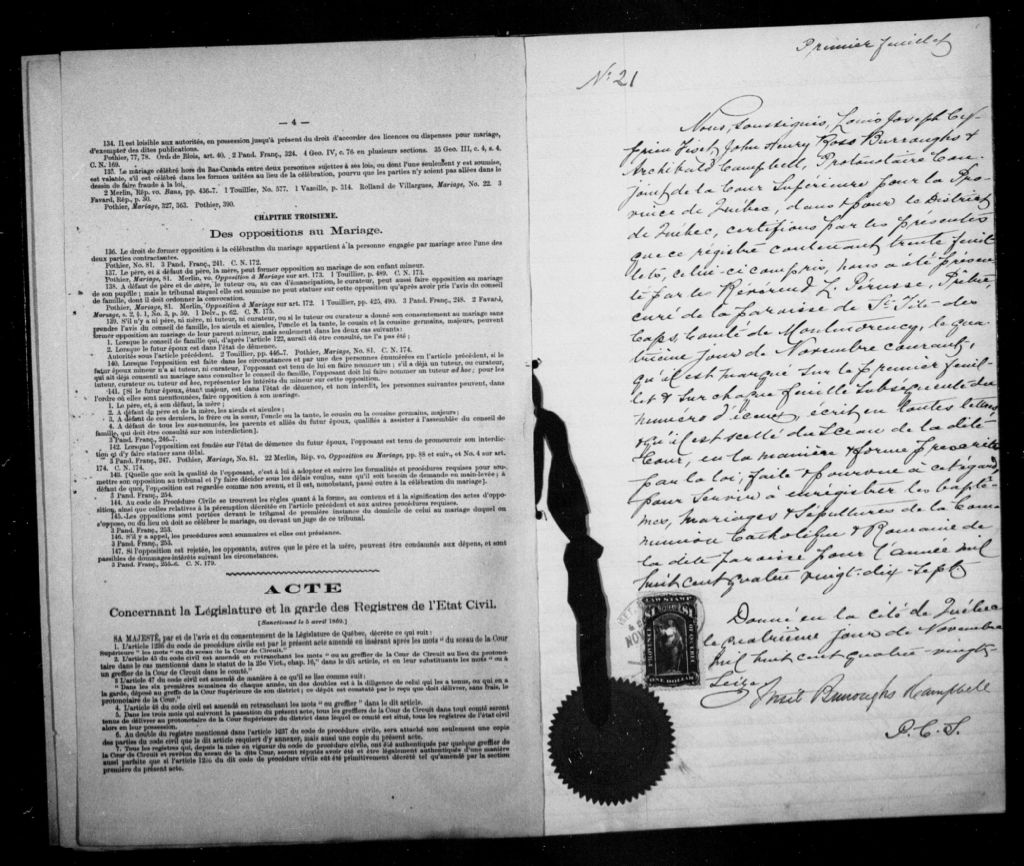 — 4 —
134. Il est loisible aux autorités, en possession jusqu'à présent du droit d'accorder des licences ou dispenses pour mariage,
d'exempter des dites publications.
Pothier, 77, 78. Ord. de Blois, art. 40. 2 Pand. Franç., 324. 4 Geo. IV, c. 76 en plusieurs sections. 35 Geo. III, c. 4, s. 4.
C. N. 169.
135. Le mariage célébré hors du Bas-Canada entre deux personnes sujettes à ses lois, ou dont l'une seulement y est soumise,
est valable, s'il est célébré dans les formes usitées au lieu de la célébration, pourvu que les parties n'y soient pas allées dans le
dessin de faire fraude à la loi.
2 Merlin, Rép. vo. Bans, pp. 436-7. 1 Touillier, No. 577. 1 Vazeille, p. 314. Rolland de Villargues, Mariage, No. 22. 3
Favard, Rép., p. 30.
Pothier, Mariage, 327, 363. Pothier, 390.
CHAPITRE TROISIEME.
Des oppositions au Mariage.
136. Le droit de former opposition à la célébration du mariage appartient à la personne engagée par mariage avec l'une des
deux parties contractantes.
Pothier, No. 81. 3 Pand. Franç., 241. C. N. 172.
137. Le père, et à défaut du père, la mère, peut former opposition au mariage de son enfant mineur.
Pothier, Mariage, 81. Merlin, vo. Opposition à Mariage sur art. 173. 1 Touillier, p. 489. C. N. 173.
138. A défaut de père et de mère, le tuteur ou, au cas d'émancipation, le curateur, peut aussi faire opposition au mariage
de son pupille; mais le tribunal auquel elle est soumise ne peut statuer sur cette opposition qu'après avoir pris l'avis du conseil
de famille, dont il doit ordonner la convocation.
Pothier, Mariage, 81. Merlin, Opposition à Mariage sur art. 172. 1 Touillier, pp. 425, 490. 3 Pand. Franç., 248. 2 Favard,
Mariage, s. 2, § 1, No. 3, p. 59. 1 Delv., p. 62. C. N. 175.
139. S'il n'y a ni père, ni mère, ni tuteur, ni curateur, ou si le tuteur ou curateur a donné son consentement au mariage sans
prendre l'avis du conseil de famille, les aïeuls et aïeules, l'oncle et la tante, le cousin et la cousine germains, majeurs, peuvent
former opposition au mariage de leur parent mineur, mais seulement dans les deux cas suivants:
1. Lorsque le conseil de famille qui, d'après l'article 122, aurait dû être consulté, ne l'a pas été;
2. Lorsque le futur époux est dans l'état de démence.
Autorités sous l'article précédent. 2 Touillier, pp. 446-7. Pothier, Mariage, No. 81. C. N. 174.
140. Lorsque l'opposition est faite dans les circonstances et par une des personnes énumérées en l'article précédent, si le
futur époux mineur n'a ni tuteur, ni curateur, l'opposant est tenu de lui en faire nommer un; s'il a déjà un tuteur, ou curateur,
qui ait déjà consenti au mariage sans consulter le conseil de famille, l'opposant doit lui faire nommer un tuteur ad hoc; pour les
tuteur, curateur ou tuteur ad hoc, représenter les intérêts du mineur sur cette opposition.
141. [Si le futur époux, étant majeur, est dans l'état de démence, et non interdit, les personnes suivantes peuvent, dans
l'ordre où elles sont mentionnées, faire opposition à son mariage.
1. Le père, et à son défaut, la mère;
2. A défaut de père et de la mère, les aïeuls et aïeules;
3. A défaut de ces derniers, le frère ou la sœur, l'oncle ou la tante, le cousin ou la cousine germains, majeurs;
4. A défaut de tous les sus-nommés, les parents et alliés du futur époux, qualifiés à assister à l'assemblée du conseil de
famille, qui doit être consulté sur son interdiction].
3 Pand. Franç., 246-7.
142. Lorsque l'opposition est fondée sur l'état de démence du futur époux, l'opposant est tenu de promouvoir son interdic-
tion et d'y faire statuer sans délai.
3 Pand. Franç., 247. Pothier, Mariage, No. 81. 22 Merlin, Rép, vo. Opposition au Mariage, pp. 88 et suiv., et No. 4 sur art.
174. C. N. 174.
143. [Quelle que soit la qualité de l'opposant, c'est à lui à adopter et suivre les formalités et procédures requises pour sou-
mettre son opposition au tribunal et l'y faire décider sous les délais voulus, sans qu'il soit besoin de demande en main-levée; à
défaut de quoi, l'opposition est regardée comme non avenue, et il est, nonobstant, passé outre à la célébration du mariage].
3 Pand. Franç., 254.
144. Au code de Procédure Civile se trouvent les règles quant à la forme, au contenu et à la signification des actes d'oppo-
sition, ainsi que celles relatives à la péremption décrétée en l'article précédent et aux autres procédures requises.
145. Les oppositions sont portées devant le tribunal de première instance du domicile de celui au mariage duquel on
s'oppose, ou du lieu où doit se célébrer le mariage, ou devant un juge de ce tribunal.
3 Pand. Franç., 253.
146. S'il y a appel, les procédures sont sommaires et elles ont préséance.
3 Pand. Franç., 253.
147. Si l'opposition est rejetée, les opposants, autres que le père et la mère, peuvent être condamnés aux dépens, et sont
passibles de dommages-intérêts suivant les circonstances.
3 Pand. Franç., 255-6. C. N. 179.
ACTE
Concernant la Législature et la garde des Registres de l'Etat Civil.
[Sanctionné le 5 avril 1869.]
SA MAJESTÉ, par et de l'avis et du consentement de la Législature de Québec, décrète ce qui suit:
1. L'article 1236 du code de procédure civile est par le présent acte amendé en insérant après les mots "du sceau de la Cour
Supérieure" les mots "ou du sceau de la Cour de Circuit."
2. L'article 45 du code civil est amendé en retranchant les mots "ou au greffier de la Cour de Circuit au lieu du protono-
taire dans le cas mentionné dans le statut de la 25e Vict., chap. 16," dans le dit article, et en leur substituant les mots "ou à
un greffier de la Cour de Circuit dans le comté."
3 L'article 47 du code civil est amendé de manière à ce qu'il se lise comme suit:
"Dans les six premières semaines de chaque année, un des doubles est à la diligence de celui qui les a tenus, ou qui en a
la garde, déposé au greffe de la Cour Supérieure de son district; ce dépôt est constaté par le reçu que doit délivrer, sans frais, le
protonotaire de la Cour."
4. L'article 48 du code civil est amendé en retranchant les mots "ou greffier" dans le dit article.
5. Dans les trois mois qui suivront la passation du présent acte, tous les greffiers de la Cour de Circuit dans tout comté seront
tenus de délivrer au protonotaire de la Cour Supérieure du district dans lequel ce comté est situé, tous les registres de l'état civil
alors en leur possession.
6. Au double du registre mentionné dans l'article 1237 du code de procédure civile, sera attaché non seulement une copie
des parties du code civil que le dit article requiert d'y annexer, mais aussi une copie du présent acte.
7. Tous les registres qui, depuis la mise en vigueur du code de procédure civile, ont été authentiqués par quelque greffier de
la Cour de Circuit et revêtus du sceau de la dite Cour, seront réputés avoir été et être légalement authentiqués d'une manière
aussi parfaite que si l'article 1236 du dit code de procédure civile eût été primitivement décrété tel qu'amendé par la section
première du présent acte.
Premier feuillet
No 21
Nous, soussignés, Louis Joseph Cy-
prien Fiset, John Henry Ross Burroughs &
Archibald Campbell, Protonotaire Con-
joint de la Cour Supérieure pour la Pro-
vince de Québec, dans & pour le District
de Québec, certifions par les présentes
que ce régistre contenant trente feuil-
lets, celui-ci compris, nous a été présen-
té par le Révérend L. Prusse, Ptre,
curé de la paroisse de St. Tite-des
Caps, Comté de Montmorency, le qua-
trième jour de Novembre courant,
qu'il est marqué sur le premier feuil-
let & sur chaque feuillet subséquent du
numéro d'iceux, écrit en toutes lettres
& qu'il est scellé du Sceau de la dite
Cour, en la manière & forme prescrite
par la loi, faite & pourvue à cet égard,
pour servir à enrégistrer les baptê-
mes, mariages & sépultures de la Com-
munion Catholique & Romaine de
la dite paroisse pour l'année mil
huit cent quatre vingt-dix-sept.
Donné en la cité de Québec
le quatrième jour de Novembre
mil huit cent quatre vingt-
seize
Fiset Burroughs & Campbell
P. C. S.
LAW STAMP
$1 $1
PROVINCE OF QUEBEC
ONE DOLLAR
NOV